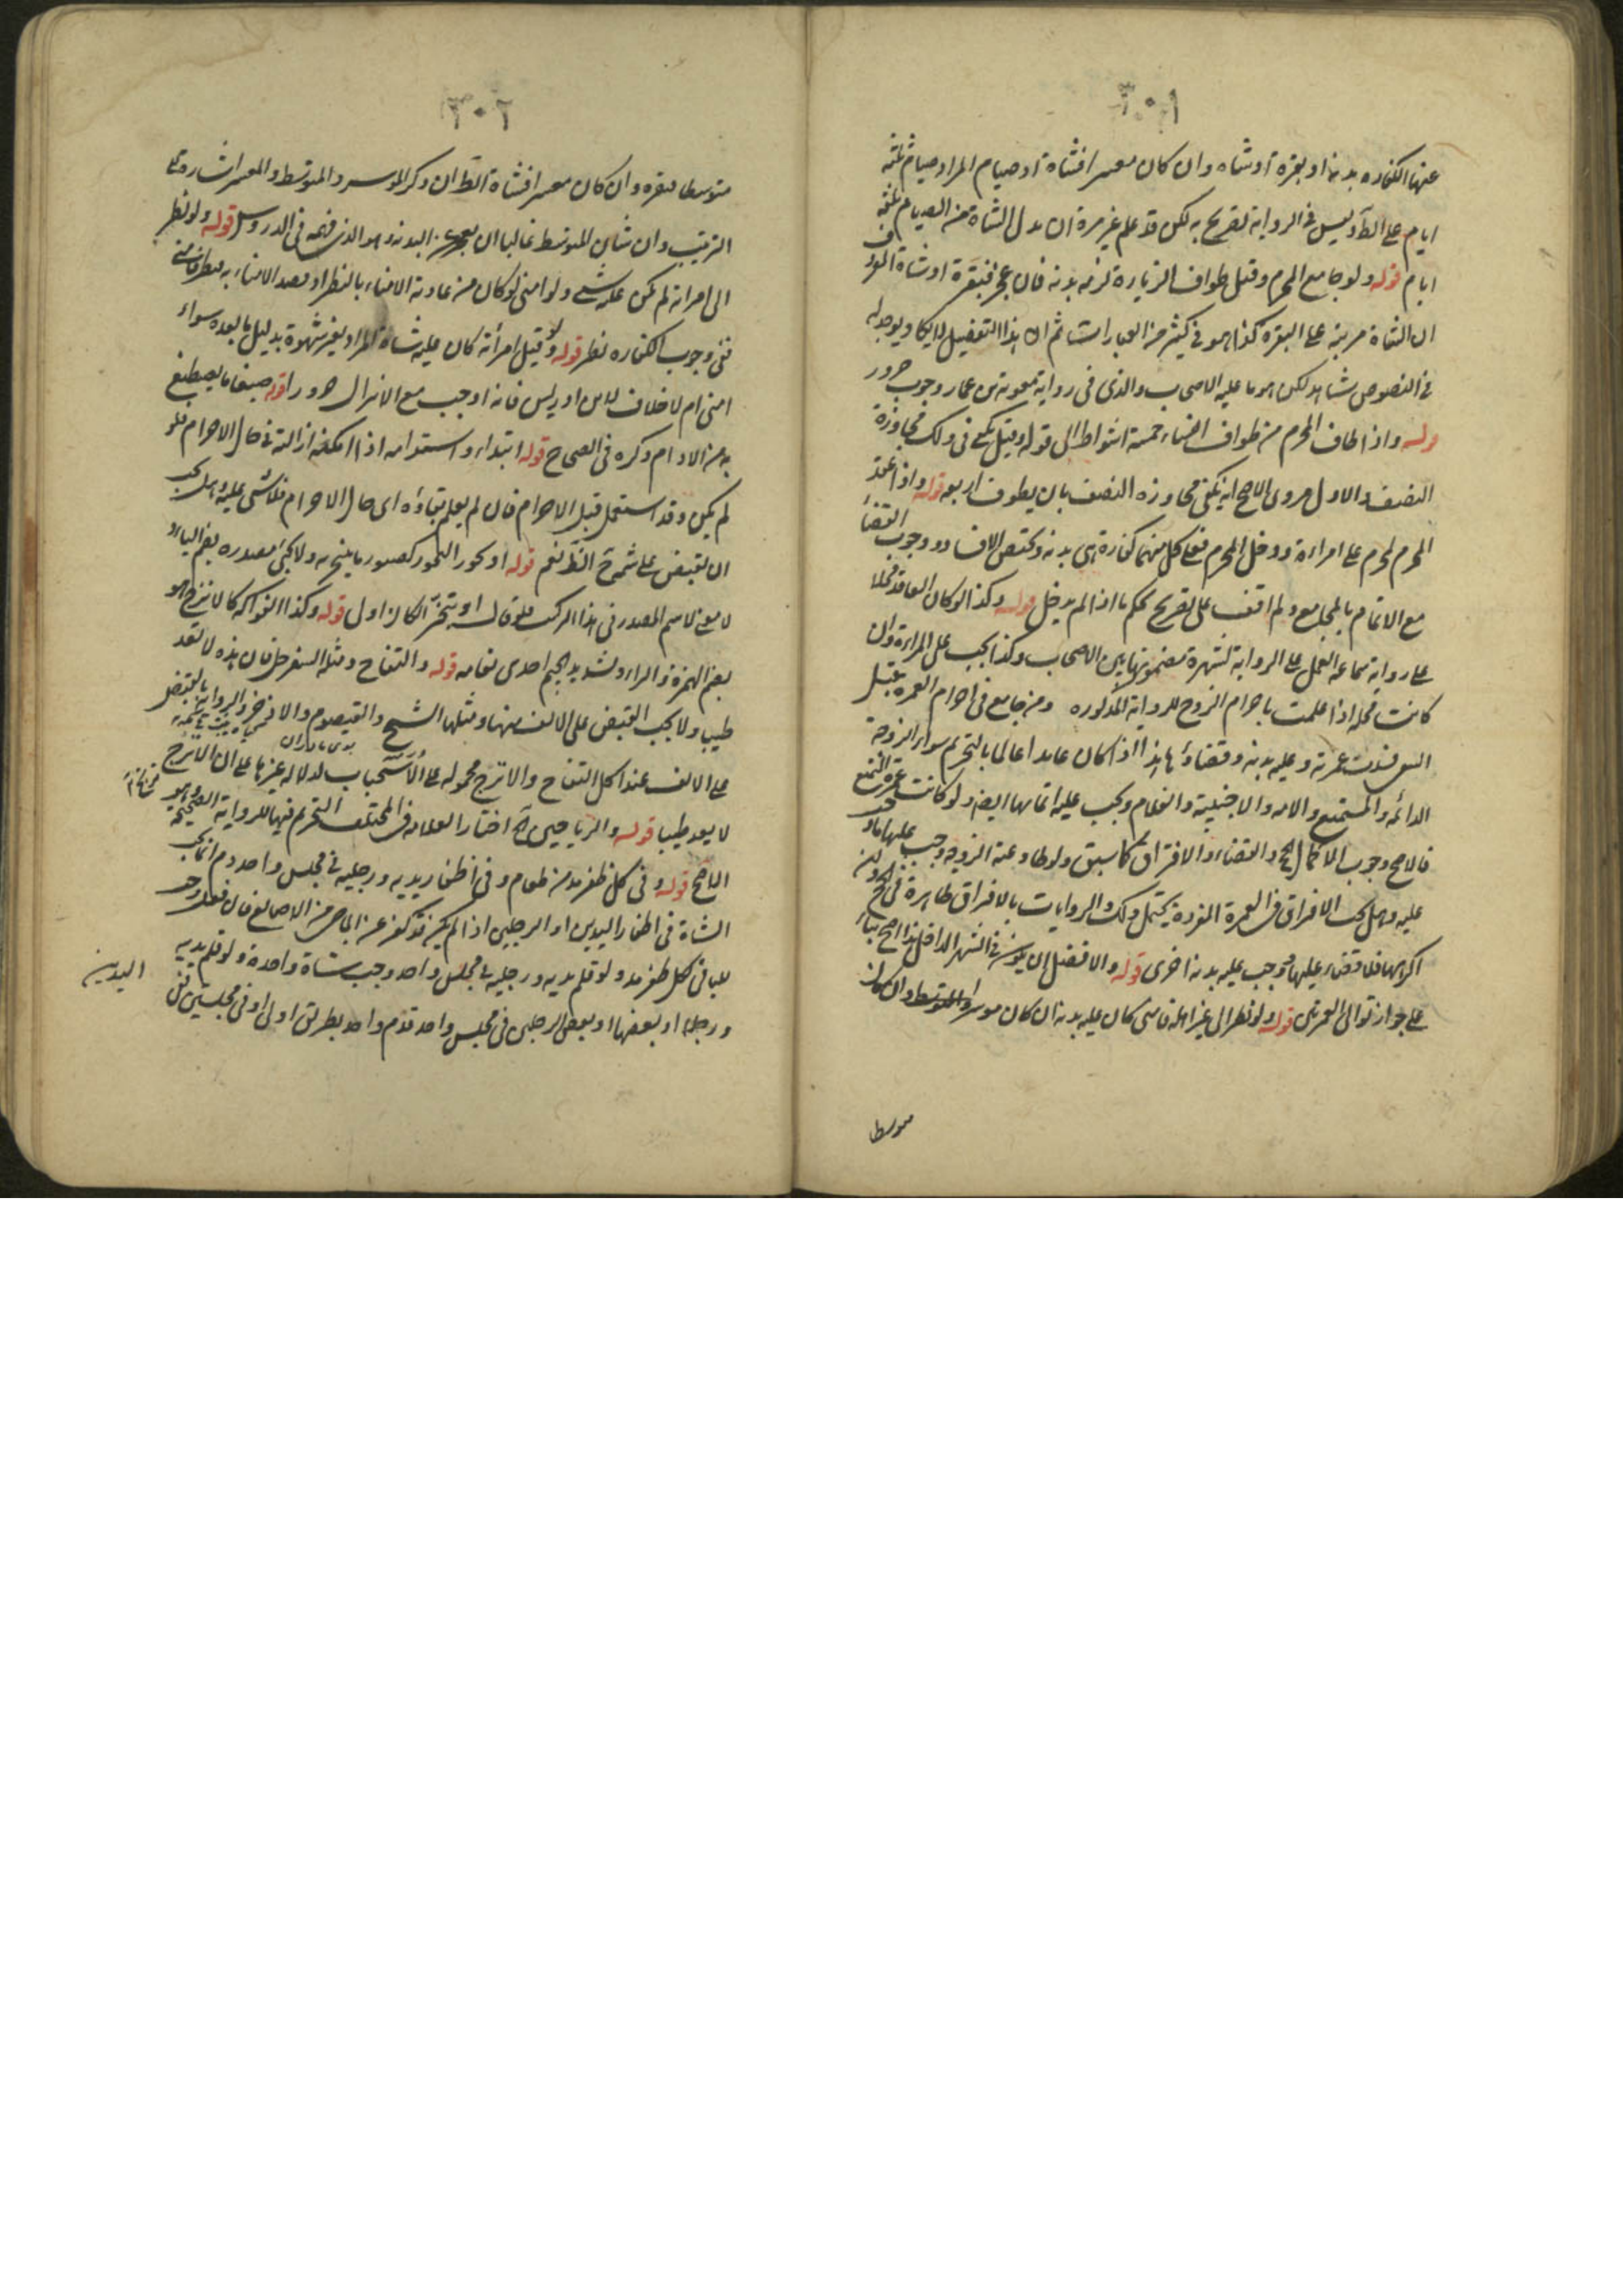 ٣٠١
عنها الكفاره بدنة او بقرة او شاه وان كان معسرا فشاة او صيام المراد صيام ثلثه
ايام على الظ وليس في الرواية تصريح به لكن قد علم غير مرة ان بدل الشاة من الصيام ثلثه
ايام قوله ولو جامع المحرم وقبل طواف الزيارة لزمه بدنه فان عجز فبقرة او شاة المراد
ان الشاة مرتبة على البقرة كذا هو في كثير من العبارات ثم ان هذا التفصيل لا يكاد يوجد له
في النصوص شاهد لكن هو ما عليه الاصحاب والذي في رواية معوية بن عمار وجوب جزور
قوله واذا طاف المحرم من طواف النساء خمسة اشواط الى قوله وقيل يكفي في ذلك مجاوزة
النصف والاول مروى الاصح انه يكفي مجاوزه النصف بان يطوف اربعه قوله واذا عقد
المحرم لمحرم على امراءة ودخل المحرم فعلى كل منهما كفارة هي بدنة ويختص الافساد ووجوب القضاء
مع الاتمام بالمجامع ولم اقف على تصريح بحكم ما اذا لم يدخل قوله وكذا لو كان العاقد محلا
على رواية سماعه العمل على الرواية لشهرة مضمونها بين الاصحاب وكذا يجب على المراءة وان
كانت محله اذا علمت باحرام الزوج للرواية المذكوره ومن جامع في احرام العمرة قبل
السعى فسدت عمرته وعليه بدنه وقضاؤها هذا اذا كان عامدا عالما بالتحريم سواء الزوجة
الدائمه والمستمتع والامه والاجنبية والغلام ويجب عليه اتمامها ايضا ولو كانت عمرة التمتع
فالاصح وجوب اكمال الحج والقضاء والافتراق كما سبق ولو طاوعته الزوجه وجب عليها ما
عليه وهل يجب الافتراق في العمرة المفردة يحتمل ذلك والروايات بالافراق ظاهرة في الحج ولو
اكرهها فلا قضاء عليها ووجب عليه بدنه اخرى قوله والافضل ان يكون في الشهر الداخل هذا اصح بناء
على جواز توالى العمرتين قوله ولو نظر الى غير اهله فامنى كان عليه بدنة ان كان موسرا والمتوسط وان كان
متوسطا
٣٠٢
متوسطا فبقره وان كان معسرا فشاة الظ ان ذكر الموسر والمتوسط والمعسر اشارة الى
الترتيب وان شان المتوسط غالبا ان يعجز عن البدنه وهو الذي فهمه في الدروس قوله ولو نظر
الى امراته لم يكن عليه شي ولو امنى لو كان من عادته الامناء بالنظر او قصد الامناء به فنظر فامنى
ففي وجوب الكفاره نظر قوله ولو قبل امرأته كان عليه شاة المراد بغير شهوة بدليل ما بعده سواء
امنى ام لا خلافا لابن ادريس فانه اوجب مع الانزال جزورا قوله صبغا ما يصطبغ
به من الادام ذكره في الصحاح قوله ابتداء واستدامه اذا امكنه ازالته في حال الاحرام فلو
لم يكن وقد استعمل قبل الاحرام فان لم يعلم بقاؤه اى حال الاحرام فلا شي عليه وهل يجب
ان يقبض على شمه الظ نعم قوله او بخور البخور كصبور ما يتبخر به ولا يجئ مصدره بضم الباء
لا معنى لاسم المصدر في هذا المركب فلو قال او يتبخر لكان اولى قوله وكذا الفواكه كالاترج هو
بضم الهمزة والراء وتشديد الجيم احدى لغاته قوله والتفاح ومثله السفرجل فان هذه لا تعد
طيبا ولا يجب القبض على الانف منها ومثلها الشيح والقيصوم والاذخر والرواية بالقبض
على الانف عند اكل التفاح والاترج محموله على الاستحباب لدلاله غيرها على ان الاترج
لا يعد طيبا قوله والرياحين اختار العلامه في المختلف التحريم فيها للرواية الصحيحة وهو
الاصح قوله وفي كل ظفر مد من طعام وفي اظفار يديه ورجليه في مجلس واحد دم انما يجب
الشاة في اظفار اليدين او الرجلين اذا لم يكن قد كفر عن الماضى من الاصابع فان فعل وجب
للباقى لكل ظفر مد ولو قلم يديه ورجليه في مجلس واحد وجب شاة واحدة ولو قلم يديه
ورجله او بعضها او بعض الرجلين في مجلس واحد فدم واحد بطريق اولى او في مجلسين ففي
اليدين